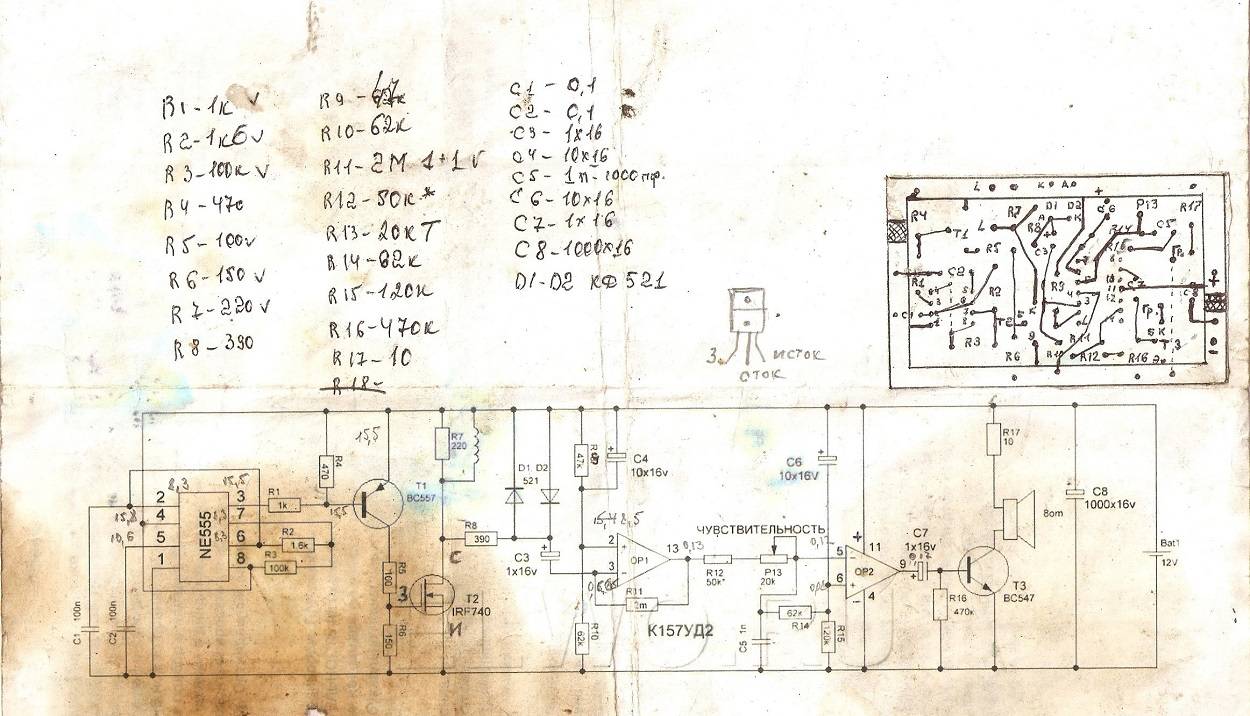 R1-1к v
R2-1к6 v
R3-100к v
R4-470
R5-100 v
R6-150 v
R7-220 v
R8-390
R9-47к
R10-62к
R11-2М 1+1 v
R12-50к*
R13-20кТ
R14-62к
R15-120к
R16-470к
R17-10
R18-
C1-0,1
C2-0,1
C3-1х16
C4-10х16
C5-1n-1000пф.
C6-10х16
C7-1х16
C8-1000х16
D1-D2 КФ521
З. ИСТОК
СТОК
L К Д +
R4 T1 L R7 D1 D2 C6 P13 R17
R5 R8 А К C3 R14 C5
R15 Гр.
R1 C2 R2 R9 C7 C8 +
C1 T2 К Б Гр.
R3 R6 R10 R11 R12 R16 Э T3 -
15,5
R4
470
T1
BC557
R7
220
D1 D2
521
47к
C4
10x16v
C6
10x16v
R17
10
8om
C8
1000x16v
Bat1
12V
2 8,3 15,5 3
4 7
5 6
1 8
NE555
10,6
R1
1k
R2
1.6k
R3
100k
R5
100
R6
150
З
С
И
T2
IRF740
R8
390
C3
1x16v
2
3
+
-
OP1
13 0,13
R11
2m
R10
62к
К157УД2
R12
50k*
ЧУВСТВИТЕЛЬНОСТЬ
P13
20k
62к
R14
C5 1n
R15
120к
5
6
+
-
OP2
11
4
9
C7
1x16v
R16
470k
T3
BC547
C1 100n
C2 100n